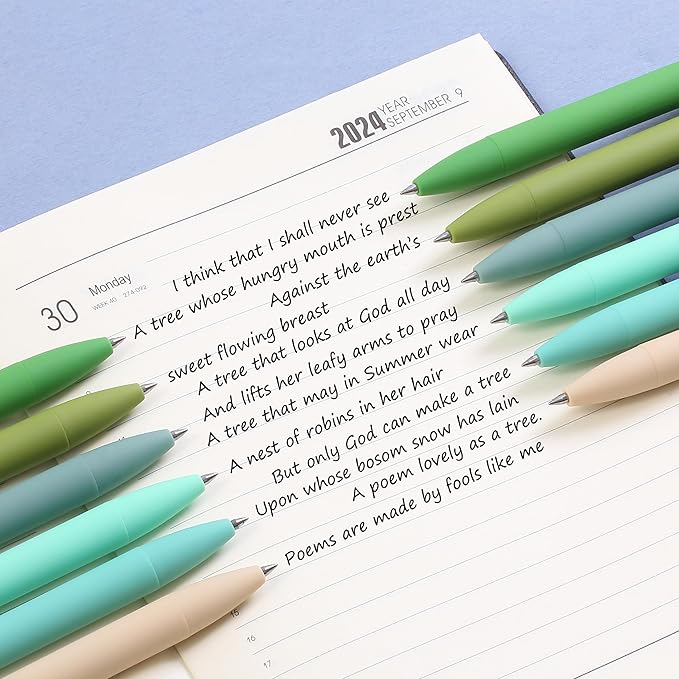 2024 YEAR
SEPTEMBER 9
30 Monday
WEEK 40 274-092
I think that I shall never see
A tree whose hungry mouth is prest
Against the earth's
sweet flowing breast
A tree that looks at God all day
And lifts her leafy arms to pray
A tree that may in Summer wear
A nest of robins in her hair
But only God can make a tree
Upon whose bosom snow has lain
A poem lovely as a tree.
Poems are made by fools like me
15
16
17